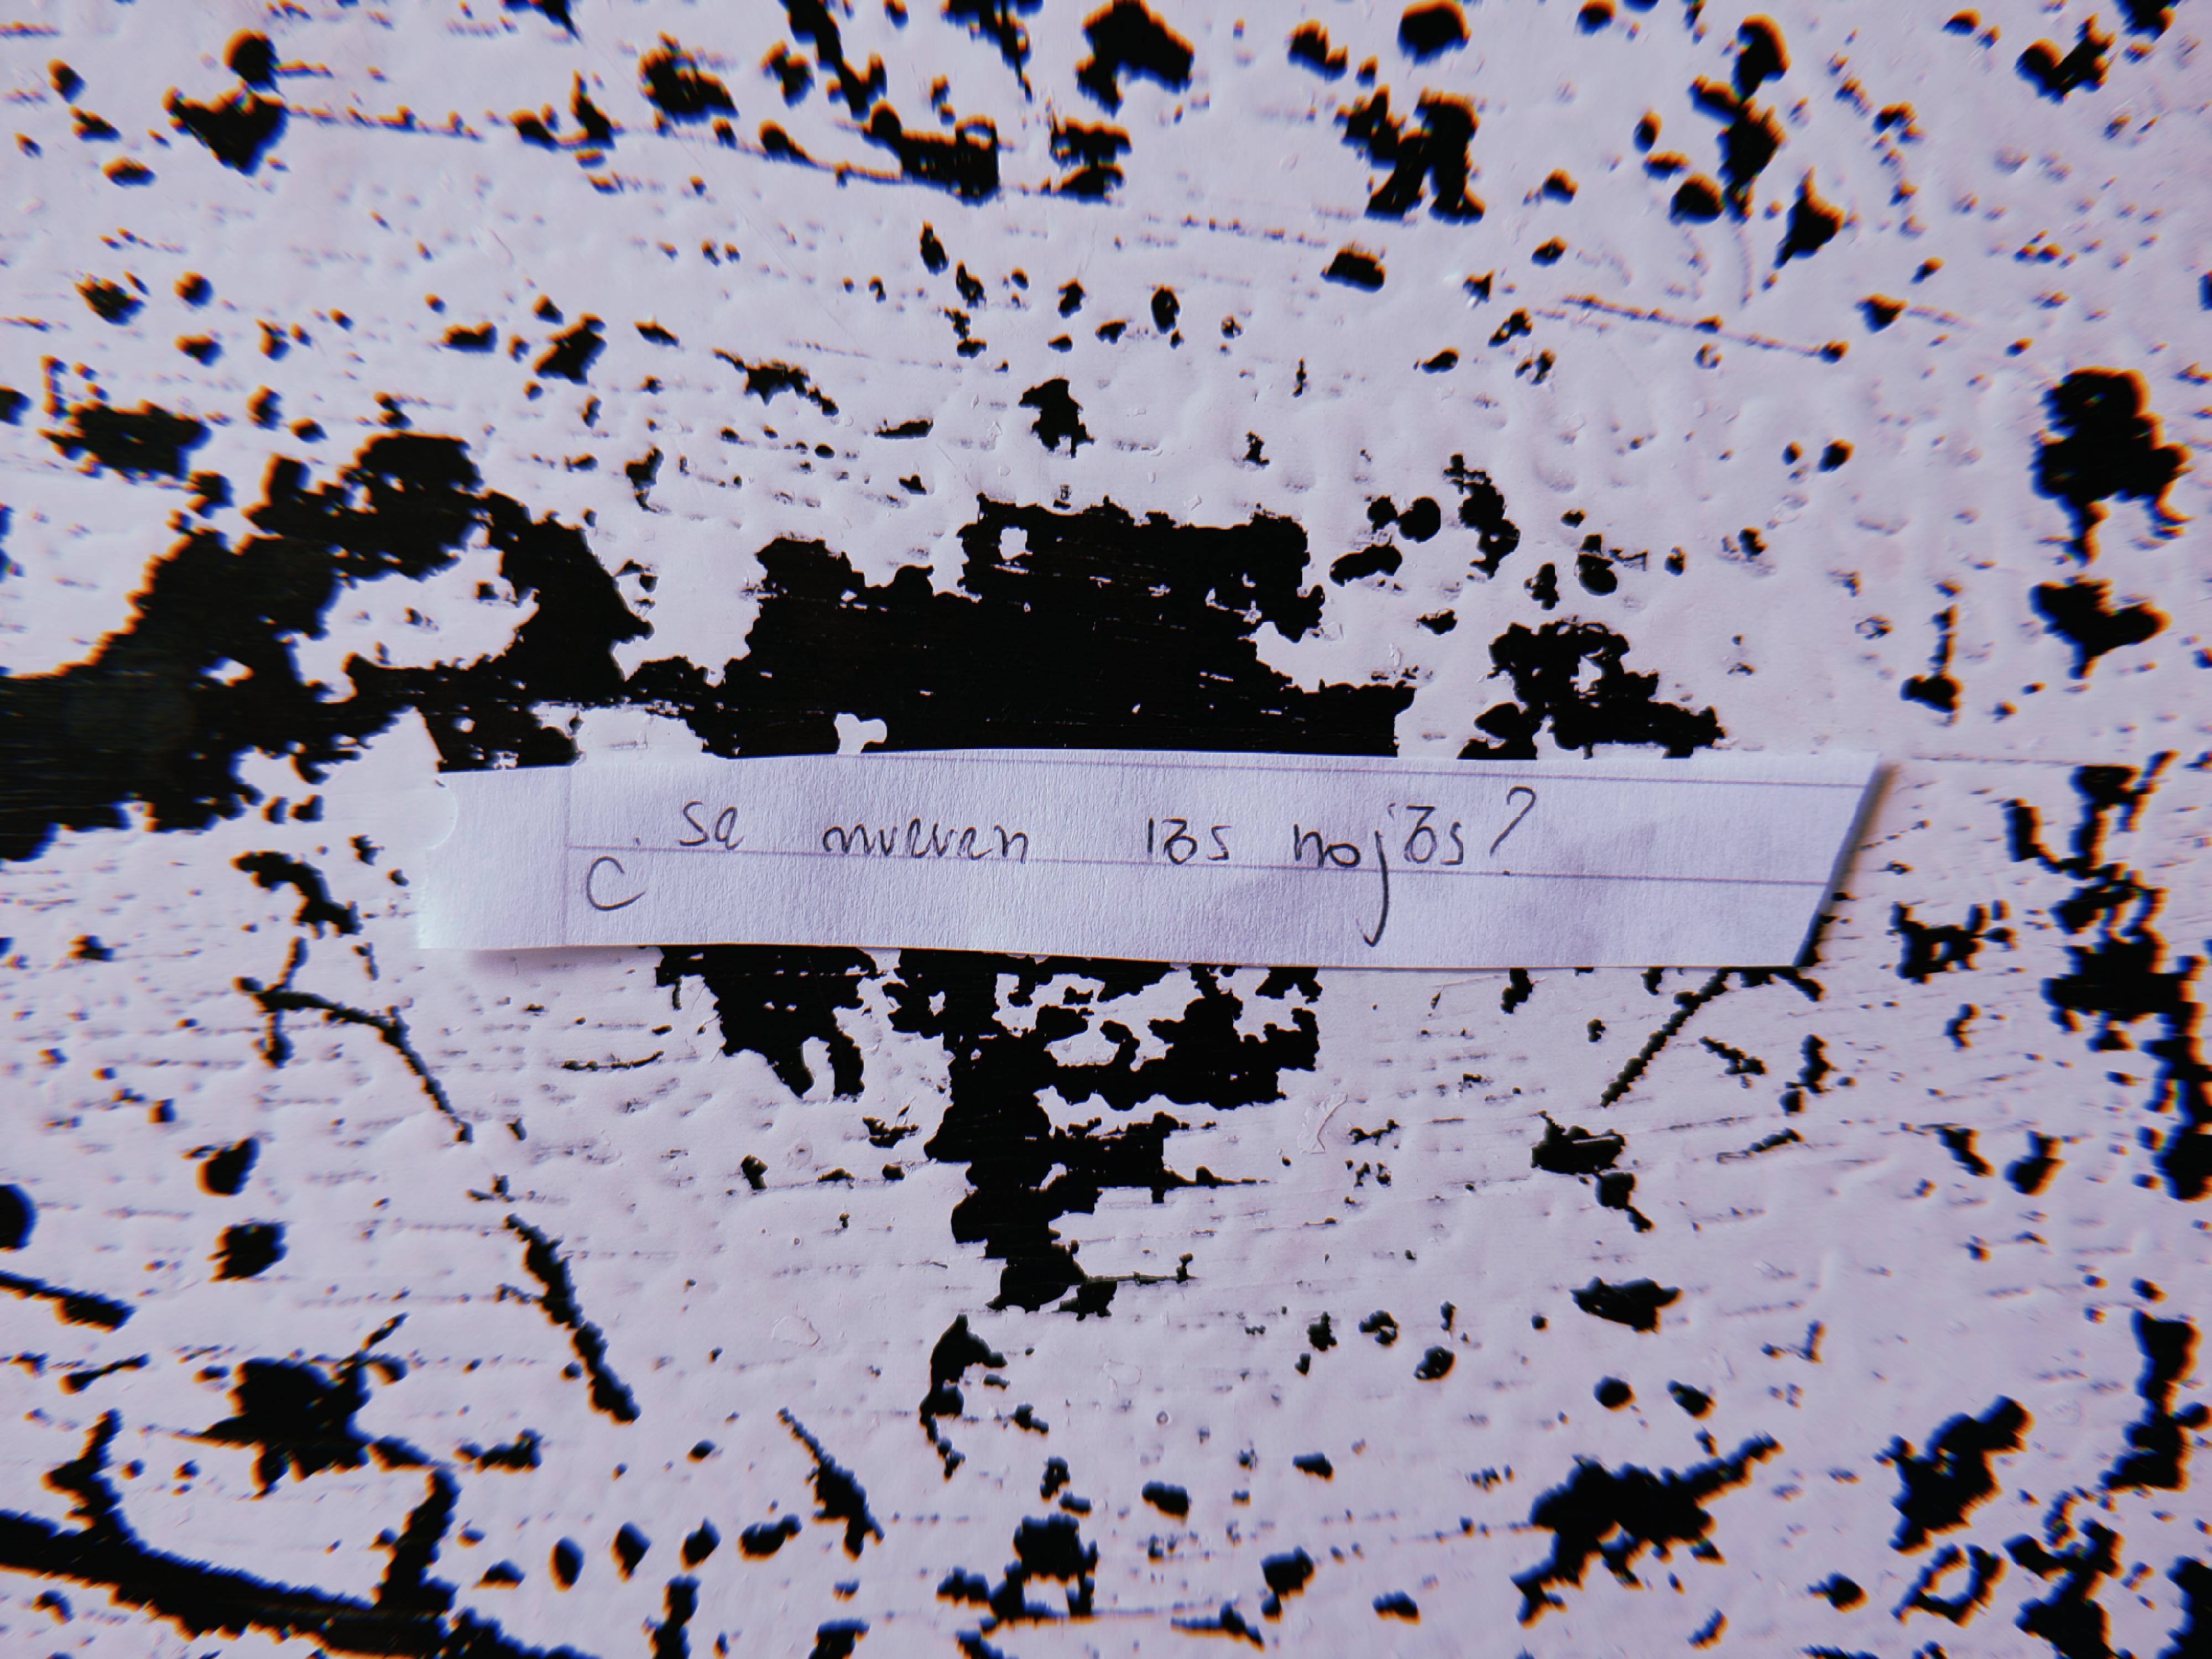 ¿ se mueven las hojas?